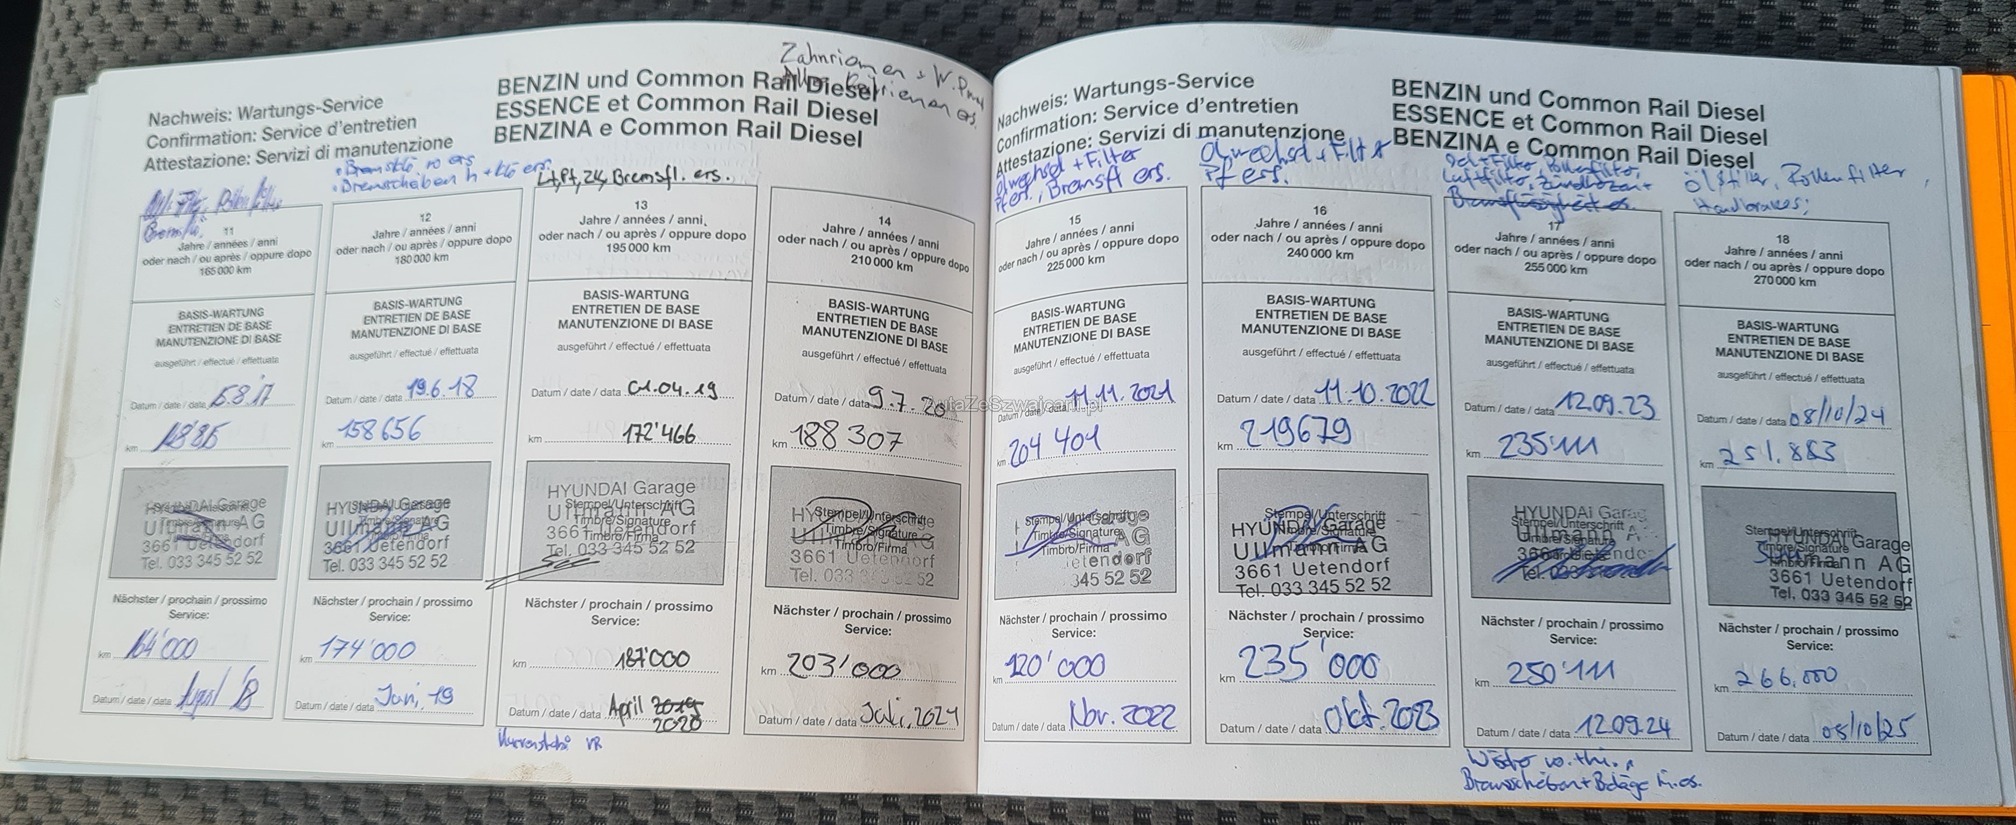 Zahnriemen + W.Pum
Nachweis: Wartungs-Service
Confirmation: Service d'entretien
Attestazione: Servizi di manutenzione
BENZIN und Common Rail Diesel
ESSENCE et Common Rail Diesel
BENZINA e Common Rail Diesel
Bremsklö. vo ers
Bremsscheiben h + klö ers.
Lf, Pf, Zk, Bremsfl. ers.
11
Jahre / années / anni
oder nach / ou après / oppure dopo
165 000 km
BASIS-WARTUNG
ENTRETIEN DE BASE
MANUTENZIONE DI BASE
ausgeführt / effectué / effettuata
Datum / date / data
km
HYUNDAI Garage
Ullmann AG
3661 Uetendorf
Tel. 033 345 52 52
Nächster / prochain / prossimo
Service:
km 164'000
Datum / date / data August 18
12
Jahre / années / anni
oder nach / ou après / oppure dopo
180 000 km
BASIS-WARTUNG
ENTRETIEN DE BASE
MANUTENZIONE DI BASE
ausgeführt / effectué / effettuata
Datum / date / data 19.6.18
km 158656
HYUNDAI Garage
Ullmann AG
3661 Uetendorf
Tel. 033 345 52 52
Nächster / prochain / prossimo
Service:
km 174'000
Datum / date / data Juni, 19
13
Jahre / années / anni
oder nach / ou après / oppure dopo
195 000 km
BASIS-WARTUNG
ENTRETIEN DE BASE
MANUTENZIONE DI BASE
ausgeführt / effectué / effettuata
Datum / date / data 01.04.19
km 172'466
HYUNDAI Garage
Stempel/Unterschrift
Ullmann AG
Timbre/Signature
3661 Uetendorf
Tel. 033 345 52 52
Nächster / prochain / prossimo
Service:
km 187'000
Datum / date / data April 2019
2020
VR
14
Jahre / années / anni
oder nach / ou après / oppure dopo
210 000 km
BASIS-WARTUNG
ENTRETIEN DE BASE
MANUTENZIONE DI BASE
ausgeführt / effectué / effettuata
Datum / date / data 9.7.20
km 188 307
Stempel/Unterschrift
Timbre/Signature
Timbro/Firma
3661 Uetendorf
Tel. 033 52 52
Nächster / prochain / prossimo
Service:
km 203'000
Datum / date / data Juli, 2021
AutaZeSzwajcarii.pl
Nachweis: Wartungs-Service
Confirmation: Service d'entretien
Attestazione: Servizi di manutenzione
BENZIN und Common Rail Diesel
ESSENCE et Common Rail Diesel
BENZINA e Common Rail Diesel
Ölwechsel + Filter
Pf ers., Bremsfl ers.
Ölwechsel + Filter
Pf ers.
Öl + Filter, Pollenfilter,
Luftfilter, Zündkerzen
Bremsflüssigkeit es.
Ölfilter, Pollenfilter,
Handbrakes;
15
Jahre / années / anni
oder nach / ou après / oppure dopo
225 000 km
BASIS-WARTUNG
ENTRETIEN DE BASE
MANUTENZIONE DI BASE
ausgeführt / effectué / effettuata
Datum / date / data 11.11.2021
km 204 401
Stempel/Unterschrift
Garage
Timbre/Signature
AG
Timbro/Firma
etendorf
345 52 52
Nächster / prochain / prossimo
Service:
km 120'000
Datum / date / data Nov. 2022
16
Jahre / années / anni
oder nach / ou après / oppure dopo
240 000 km
BASIS-WARTUNG
ENTRETIEN DE BASE
MANUTENZIONE DI BASE
ausgeführt / effectué / effettuata
Datum / date / data 11.10.2022
km 219679
Stempel/Unterschrift
HYUNDAI Garage
Ullmann AG
3661 Uetendorf
Tel. 033 345 52 52
Nächster / prochain / prossimo
Service:
km 235'000
Datum / date / data Okt. 2023
17
Jahre / années / anni
oder nach / ou après / oppure dopo
255 000 km
BASIS-WARTUNG
ENTRETIEN DE BASE
MANUTENZIONE DI BASE
ausgeführt / effectué / effettuata
Datum / date / data 12.09.23
km 235'111
HYUNDAI Garag
Stempel/Unterschrift
Ullmann A
Nächster / prochain / prossimo
Service:
km 250'111
Datum / date / data 12.09.24
Bremsscheiben + Beläge h. es.
18
Jahre / années / anni
oder nach / ou après / oppure dopo
270 000 km
BASIS-WARTUNG
ENTRETIEN DE BASE
MANUTENZIONE DI BASE
ausgeführt / effectué / effettuata
Datum / date / data 08/10/24
km 251.883
Stempel/Unterschrift
HYUNDAI Garage
Ullmann AG
3661 Uetendorf
Tel. 033 345 52 52
Nächster / prochain / prossimo
Service:
km 266.000
Datum / date / data 08/10/25